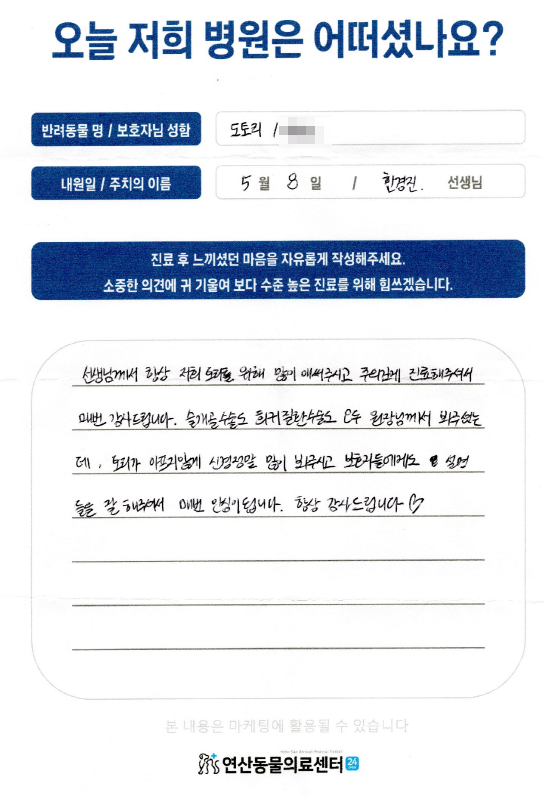 오늘 저희 병원은 어떠셨나요?
반려동물 명 / 보호자님 성함
도토리 /
내원일 / 주치의 이름
5 월 8 일 / 한경진. 선생님
진료 후 느끼셨던 마음을 자유롭게 작성해주세요.
소중한 의견에 귀 기울여 보다 수준 높은 진료를 위해 힘쓰겠습니다.
선생님께서 항상 저희 도리를 위해 많이 애써주시고 주의깊게 진료해주셔서
매번 감사드립니다. 슬개골수술도 희귀질환수술도 모두 원장님께서 봐주셨는
데, 도리가 아프지않게 신경정말 많이 써주시고 보호자들에게도 설명
들을 잘 해주셔서 매번 안심이됩니다. 항상 감사드립니다 ♡
본 내용은 마케팅에 활용될 수 있습니다
연산동물의료센터 24